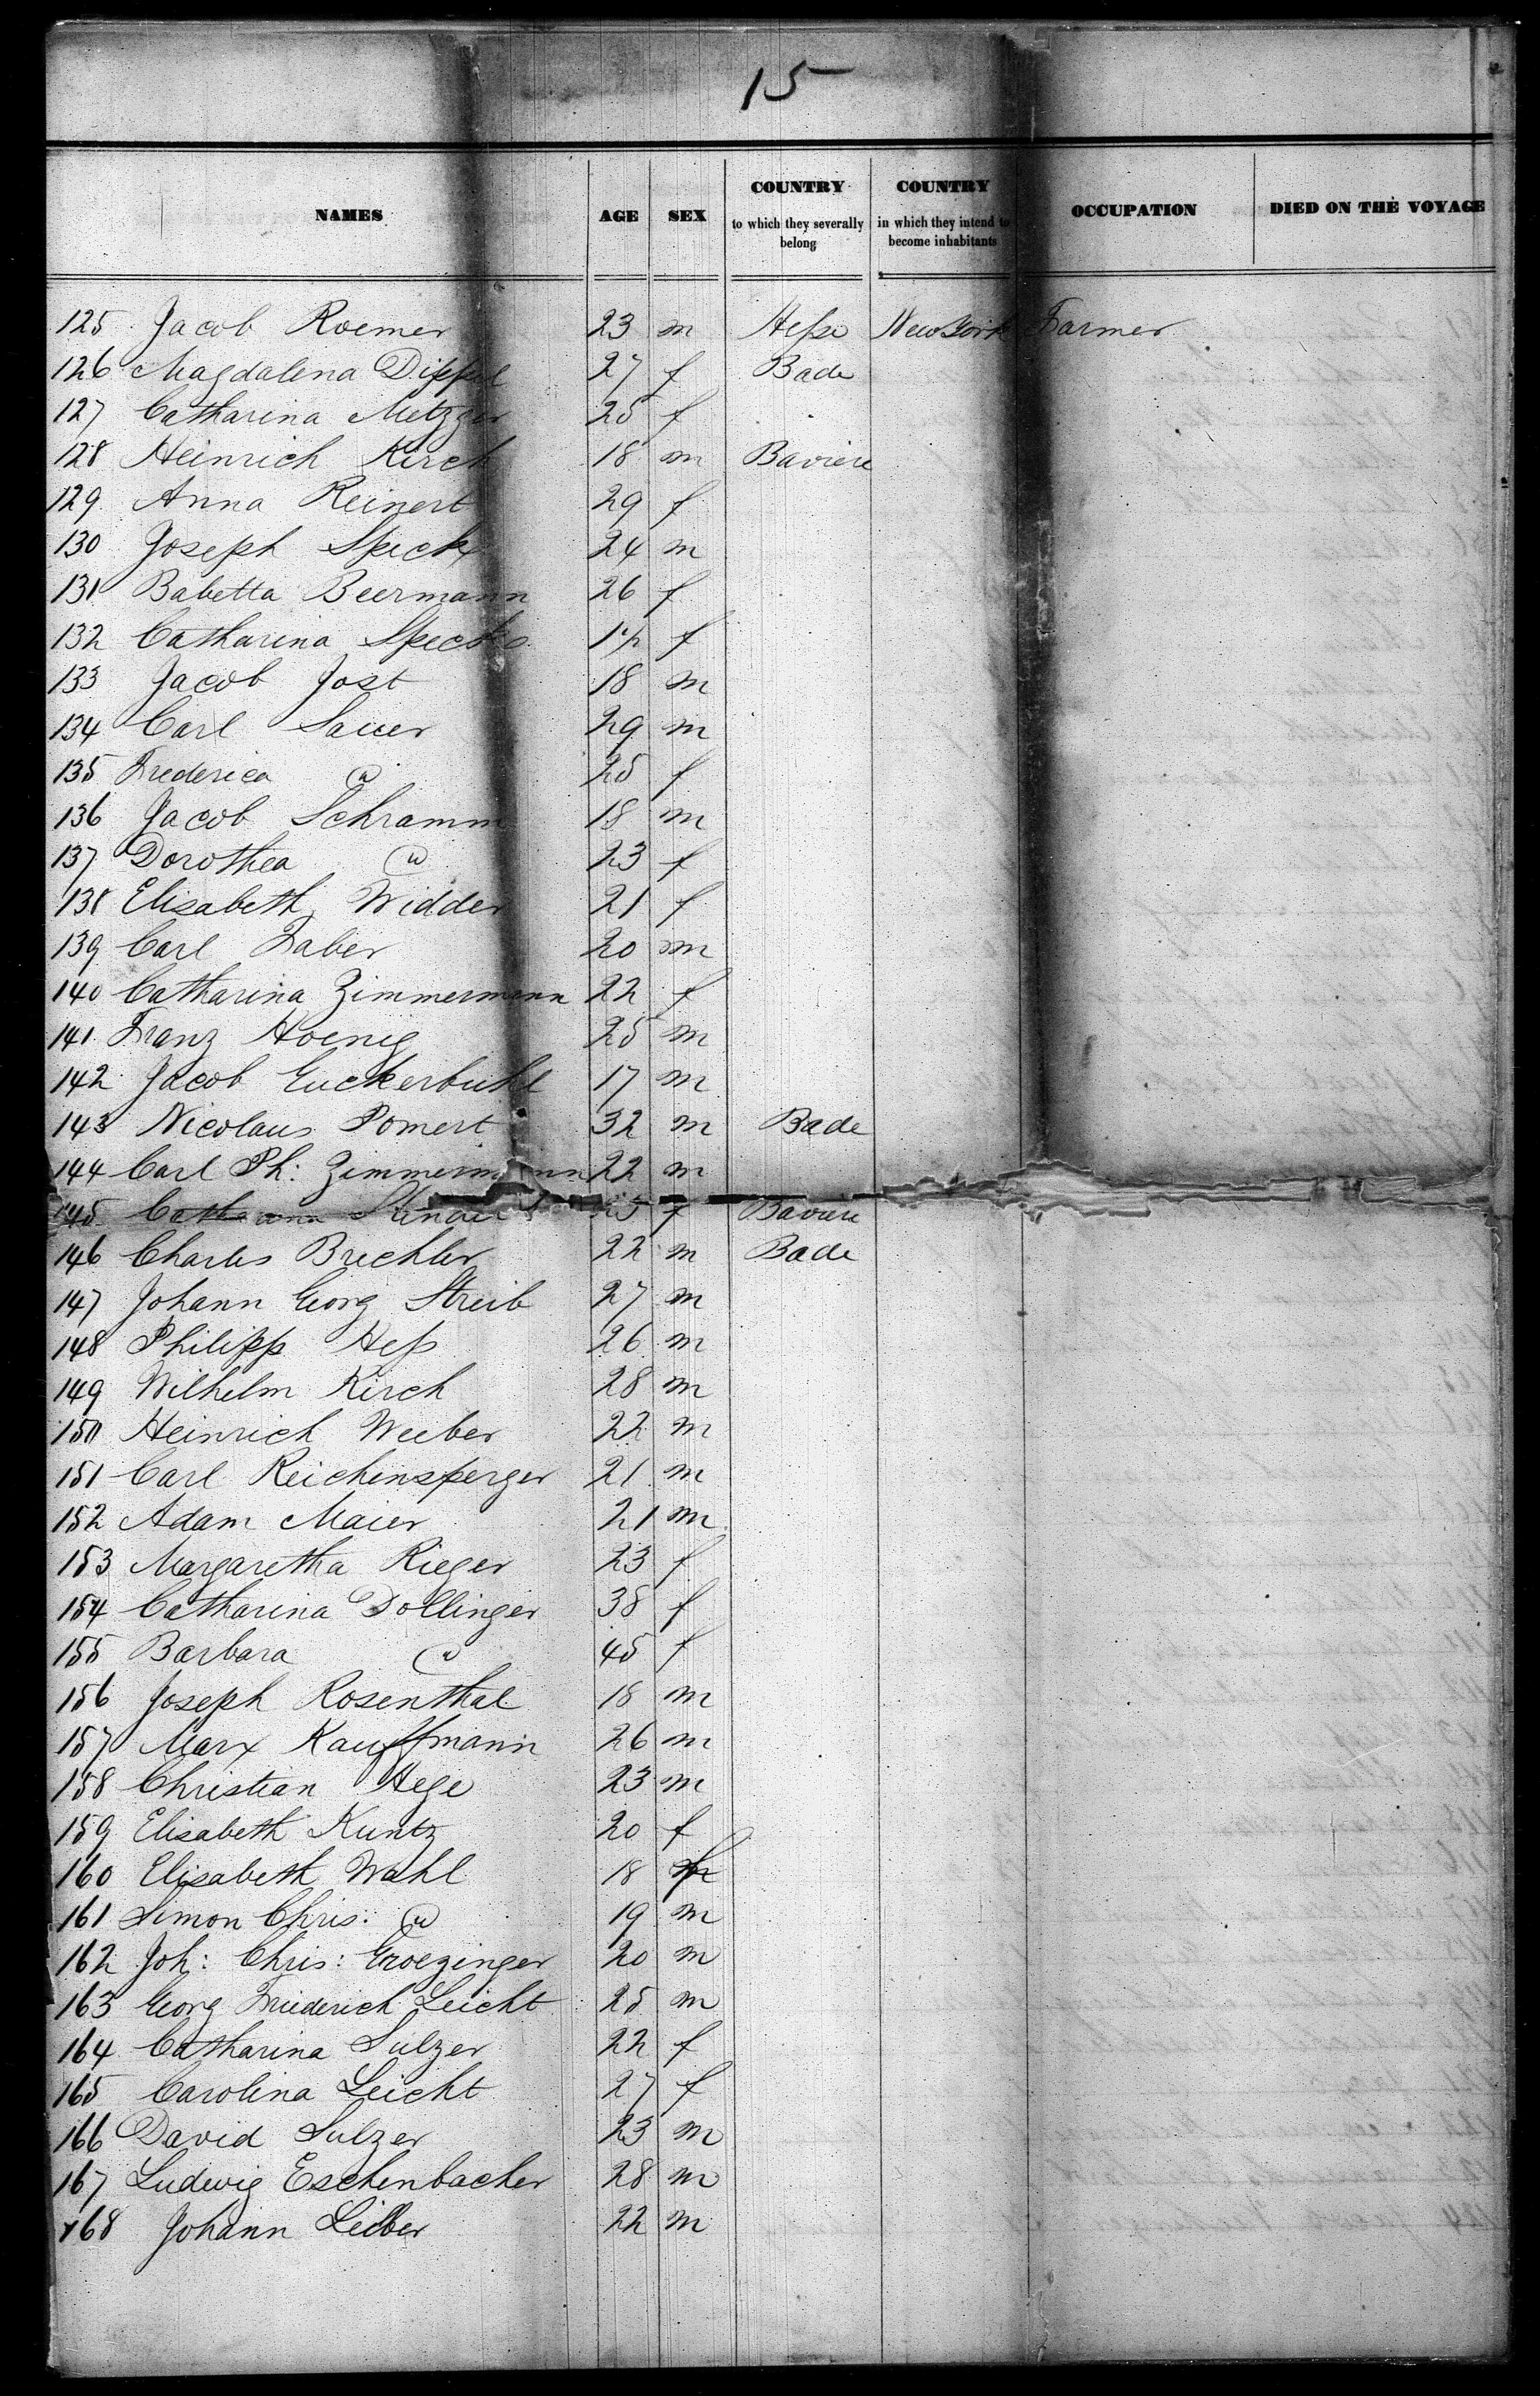 15
NAMES AGE SEX COUNTRY to which they severally belong COUNTRY in which they intend to become inhabitants OCCUPATION DIED ON THE VOYAGE
125 Jacob Roemer 23 m Hesse New York Farmer
126 Magdalena Dippel 27 f Bade
127 Catharina Metzger 25 f
128 Heinrich Kirch 18 m Baviere
129 Anna Reinert 29 f
130 Joseph Speck 24 m
131 Babetta Beermann 26 f
132 Catharina Speck f
133 Jacob Jost 18 m
134 Carl Sauer 29 m
135 Frederica 25 f
136 Jacob Schramm 18 m
137 Dorothea 23 f
138 Elisabeth Widder 21 f
139 Carl Faber 20 m
140 Catharina Zimmermann 22 f
141 Franz Hoenig 25 m
142 Jacob Euckerbuhl 17 m
143 Nicolaus Pomert 32 m Bade
144 Carl Ph: Zimmermann 22 m
145 f Baviere
146 Charles Brechler 22 m Bade
147 Johann Georg Streib 27 m
148 Philipp Hess 26 m
149 Wilhelm Kirch 28 m
150 Heinrich Weeber 22 m
151 Carl Reichensperger 21 m
152 Adam Maier 21 m
153 Margaretha Rieger 23 f
154 Catharina Dollinger 38 f
155 Barbara 45 f
156 Joseph Rosenthal 18 m
157 Marx Kauffmann 26 m
158 Christian Hege 23 m
159 Elisabeth Kuntz 20 f
160 Elisabeth Wahl 18 f
161 Simon Chris: 19 m
162 Joh: Chris: Groezinger 20 m
163 Georg Friederich Leicht 25 m
164 Catharina Sulzer 22 f
165 Carolina Leicht 27 f
166 David Sulzer 23 m
167 Ludwig Eschenbacher 28 m
168 Johann Leiber 22 m